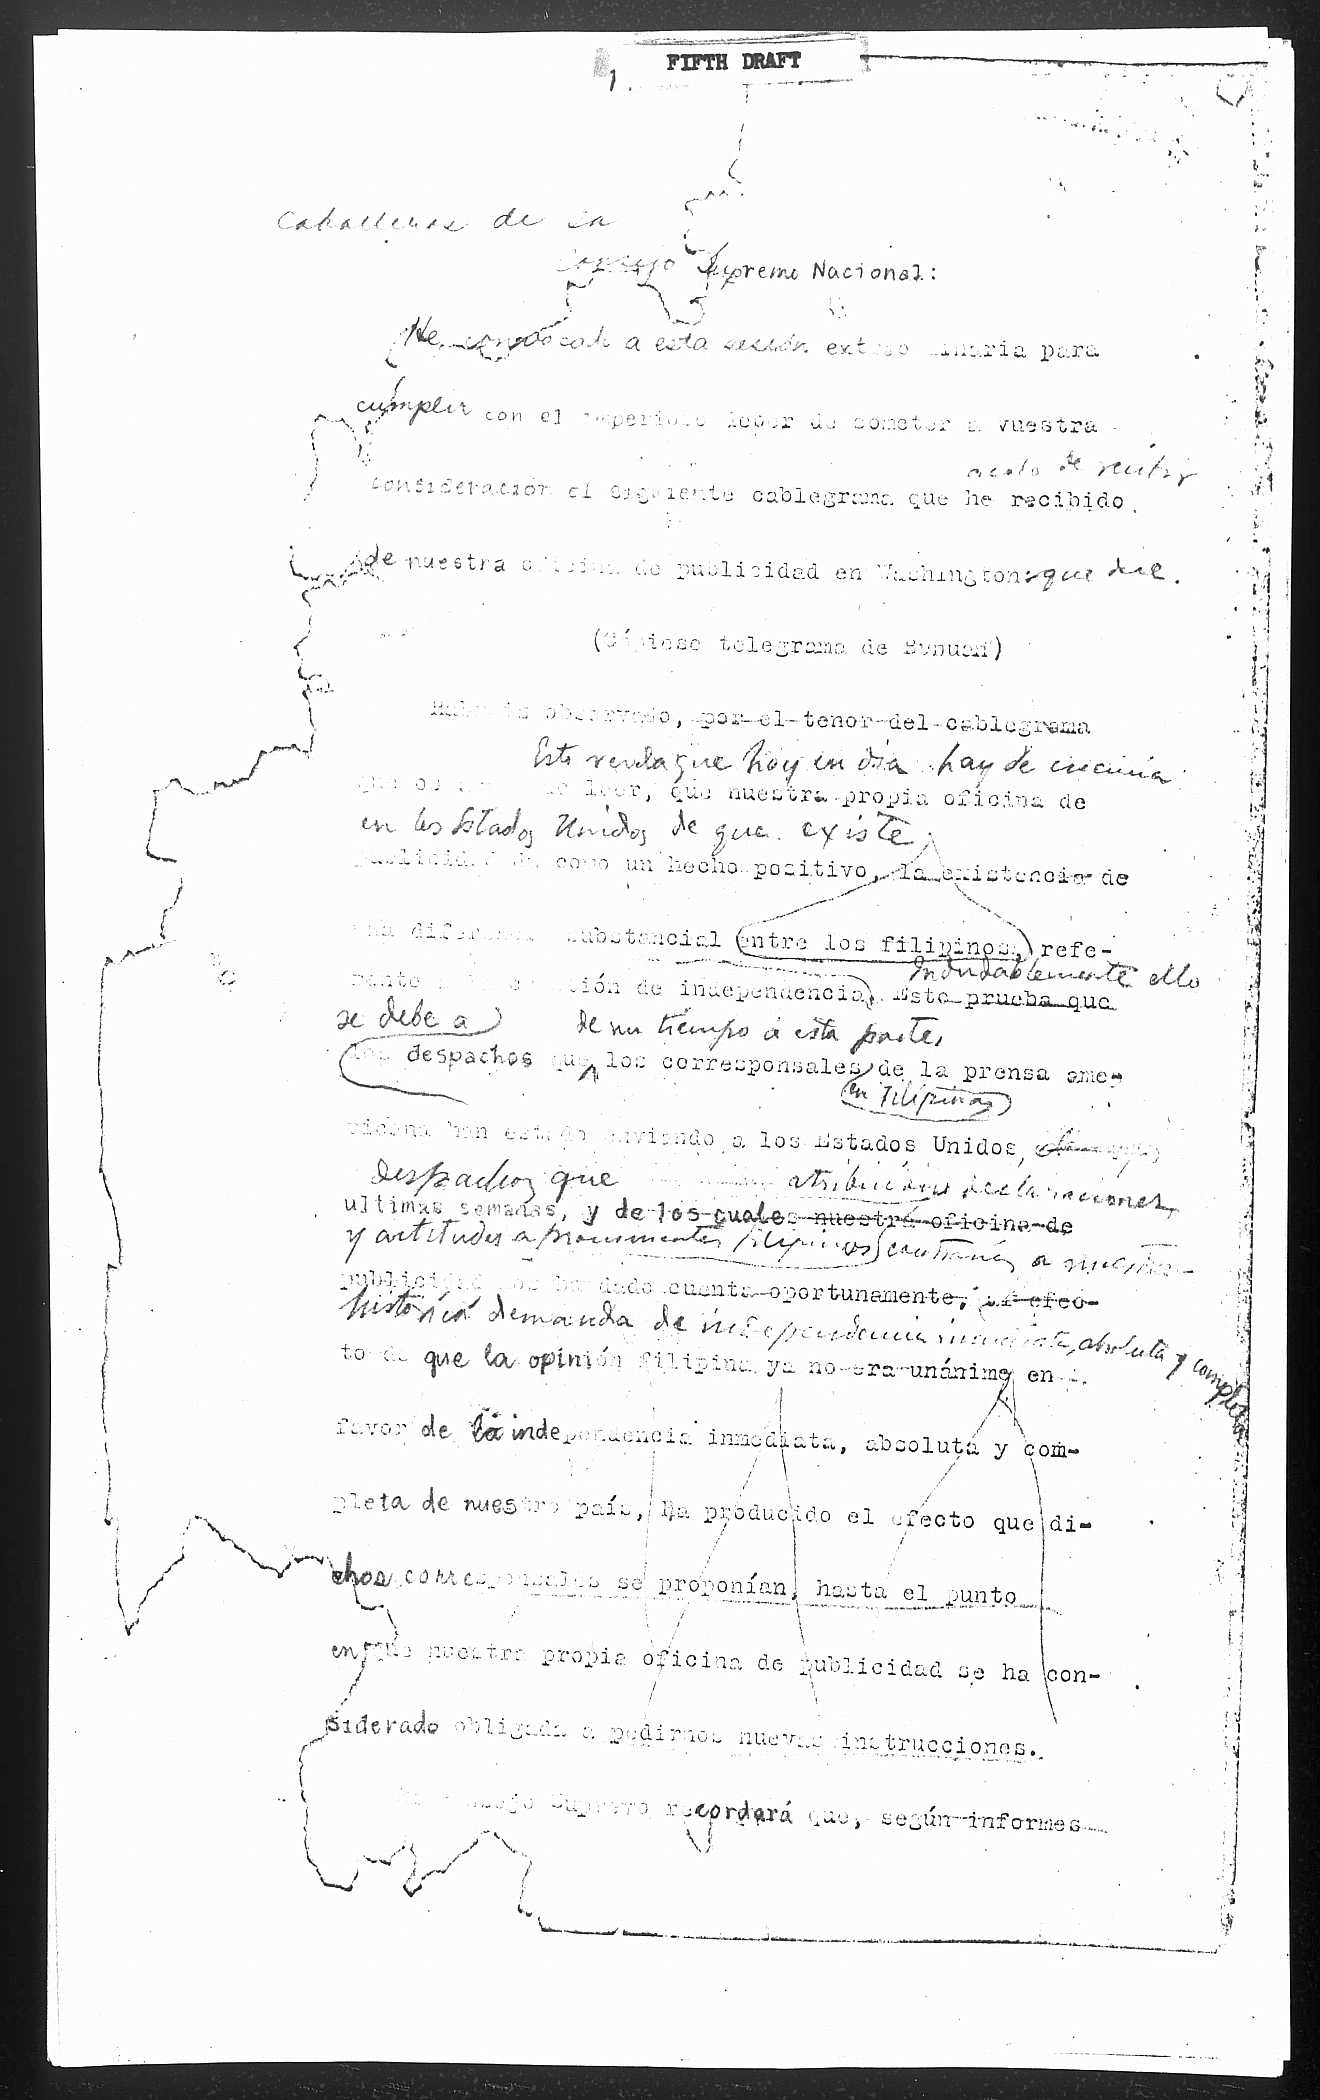 FIFTH DRAFT
Caballeros de la
Consejo Supremo Nacional:
He convocado a esta sesión extraordinaria para
cumplir con el imperioso deber de someter a vuestra
acabo de recibir
consideración el siguiente cablegrama que he recibido
de nuestra oficina de publicidad en Washington que dice.
(Cópiese telegrama de Bunuan)
observado, por el tenor del cablegrama
que hoy en dia hay
que os leer, que nuestra propia oficina de
en los Estados Unidos de que existe
publicidad da como un hecho positivo, la existencia de
una diferencia substancial entre los filipinos, refe-
Indudablemente ello
rente cuestión de independencia. Esto prueba que
se debe a de un tiempo a esta parte,
los despachos que los corresponsales de la prensa ame-
en Filipinas
ricana han estado enviando a los Estados Unidos,
despachos que atribuian declaraciones
ultimas semanas, y de los cuales nuestra oficina de
y actitudes a prominentes filipinos contraria a nuestra
publicidad nos ha dado cuenta oportunamente, al efec-
historica demanda de independencia inmediata, absoluta y completa
to de que la opinión filipina ya no era unánime en
favor de la independencia inmediata, absoluta y com-
pleta de nuestro país, ha producido el efecto que di-
chos corresponsales se proponían, hasta el punto
en que nuestra propia oficina de publicidad se ha con-
siderado obligada a pedirnos nuevas instrucciones.
Consejo Supremo recordará que, según informes